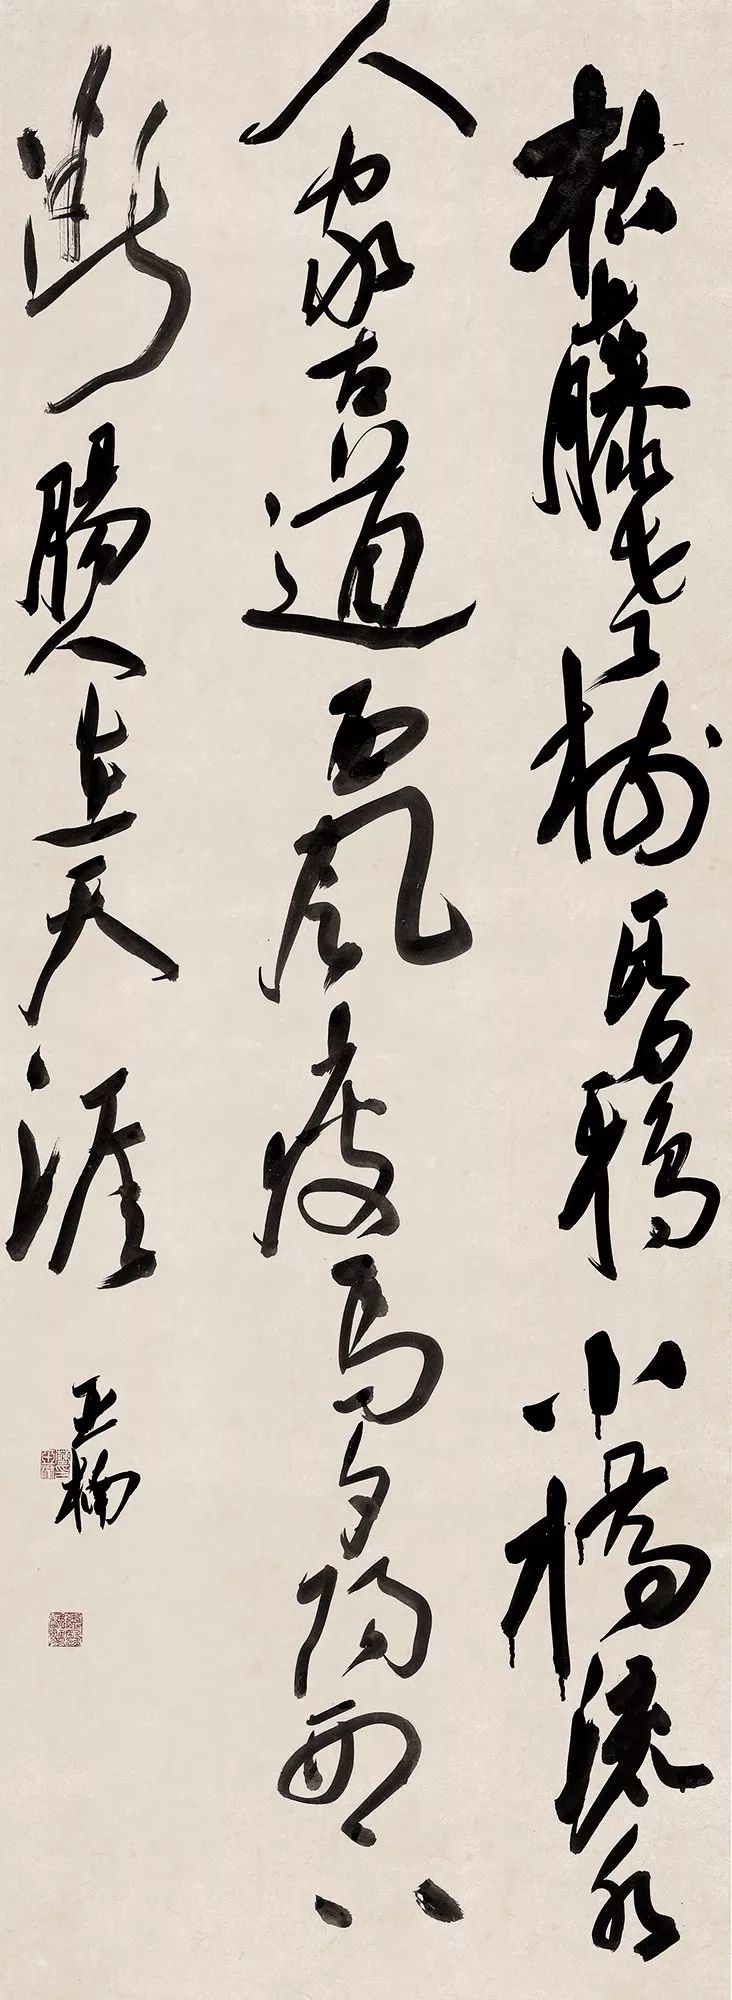 枯藤老樹昏鴉小橋流水
人家古道西風瘦馬夕陽西下
斷腸人在天涯
楠